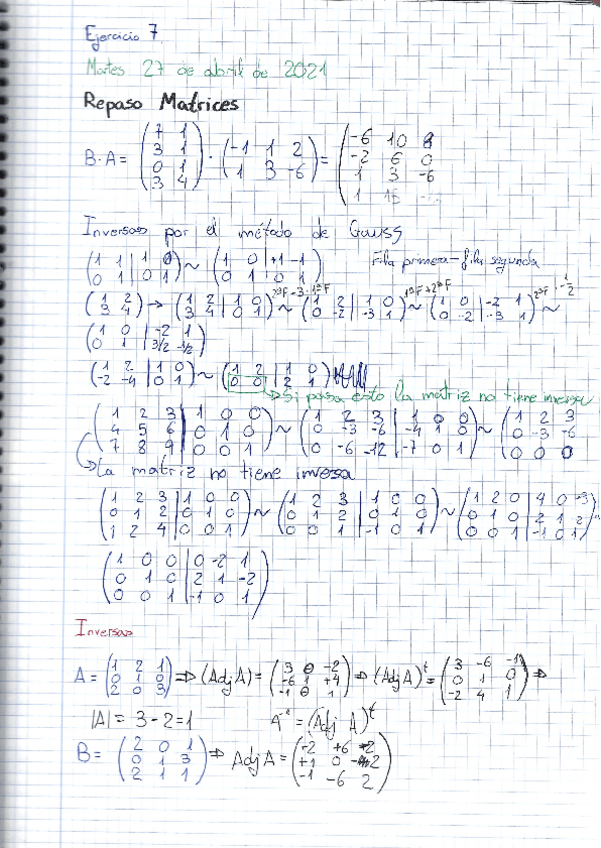 Ejercicio 7
Martes 27 de abril de 2021
Repaso Matrices
B·A = (7 1 / 3 1 / 0 1 / 3 4) · (-1 1 2 / 1 3 -6) = (-6 10 8 / -2 6 0 / 1 3 -6 / 1 15 ...)
Inversas por el método de Gauss
(1 1 | 1 0 / 0 1 | 0 1) ~ (1 0 | +1 -1 / 0 1 | 0 1) Fila primera - fila segunda
(1 2 / 3 4) → (1 2 | 1 0 / 3 4 | 0 1) 2ªF - 3·1ªF ~ (1 2 | 1 0 / 0 -2 | -3 1) 1ªF + 2ªF ~ (1 0 | -2 1 / 0 -2 | -3 1) 2ªF · -1/2 ~
(1 0 | -2 1 / 0 1 | 3/2 -1/2)
(1 2 | 1 0 / -2 -4 | 0 1) ~ (1 2 | 1 0 / 0 0 | 2 1)
→ Si pasa esto la matriz no tiene inversa
(1 2 3 | 1 0 0 / 4 5 6 | 0 1 0 / 7 8 9 | 0 0 1) ~ (1 2 3 | 1 0 0 / 0 -3 -6 | -4 1 0 / 0 -6 -12 | -7 0 1) ~ (1 2 3 / 0 -3 -6 / 0 0 0)
→ La matriz no tiene inversa
(1 2 3 | 1 0 0 / 0 1 2 | 0 1 0 / 1 2 4 | 0 0 1) ~ (1 2 3 | 1 0 0 / 0 1 2 | 0 1 0 / 0 0 1 | -1 0 1) ~ (1 2 0 | 4 0 -3 / 0 1 0 | 2 1 2 / 0 0 1 | -1 0 1)
(1 0 0 | 0 -2 1 / 0 1 0 | 2 1 -2 / 0 0 1 | -1 0 1)
Inversas
A = (1 2 1 / 0 1 0 / 2 0 3) ⇒ (Adj A) = (3 0 -2 / -6 1 +4 / -1 0 1) ⇒ (Adj A)ᵗ = (3 -6 -1 / 0 1 0 / -2 4 1) ⇒
|A| = 3 - 2 = 1 A⁻¹ = (Adj A)ᵗ
B = (2 0 1 / 0 1 3 / 2 1 1) ⇒ Adj A = (-2 +6 -2 / +1 0 -2 / -1 -6 2)